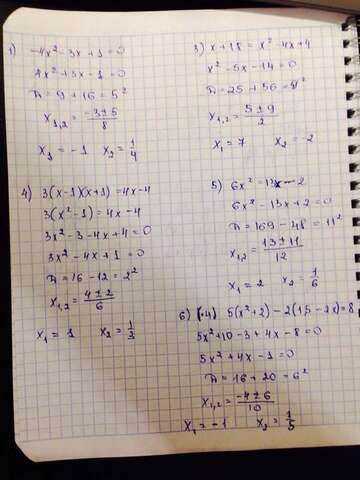 1) -4x² - 3x + 1 = 0
4x² + 3x - 1 = 0
D = 9 + 16 = 5²
x₁,₂ = (-3 ± 5)/8
x₁ = -1 x₂ = 1/4
3) x + 18 = x² - 4x + 4
x² - 5x - 14 = 0
D = 25 + 56 = 9²
x₁,₂ = (5 ± 9)/2
x₁ = 7 x₂ = -2
4) 3(x-1)(x+1) = 4x - 4
3(x² - 1) = 4x - 4
3x² - 3 - 4x + 4 = 0
3x² - 4x + 1 = 0
D = 16 - 12 = 2²
x₁,₂ = (4 ± 2)/6
x₁ = 1 x₂ = 1/3
5) 6x² = 13x - 2
6x² - 13x + 2 = 0
D = 169 - 48 = 11²
x₁,₂ = (13 ± 11)/12
x₁ = 2 x₂ = 1/6
6) (-4) 5(x² + 2) - 2(1,5 - 2x) = 8
5x² + 10 - 3 + 4x - 8 = 0
5x² + 4x - 1 = 0
D = 16 + 20 = 6²
x₁,₂ = (-4 ± 6)/10
x₁ = -1 x₂ = 1/5